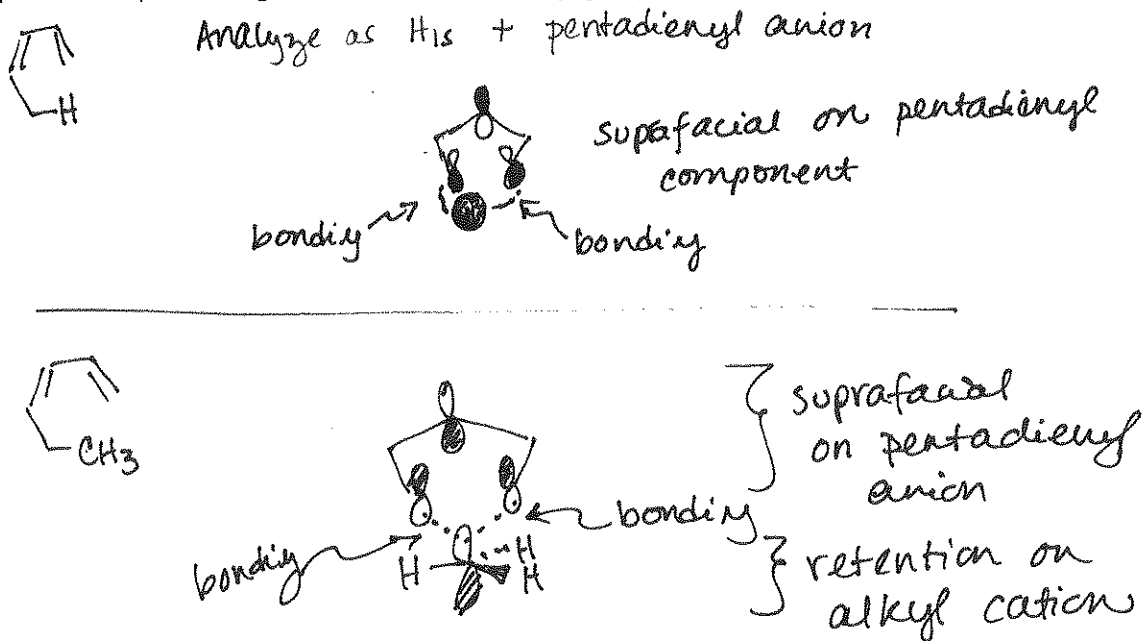 Analyze as H1s + pentadienyl anion
H
suprafacial on pentadienyl
component
bonding
bonding
CH3
suprafacial
on pentadienyl
anion
bonding
bonding
H
H
H
retention on
alkyl cation